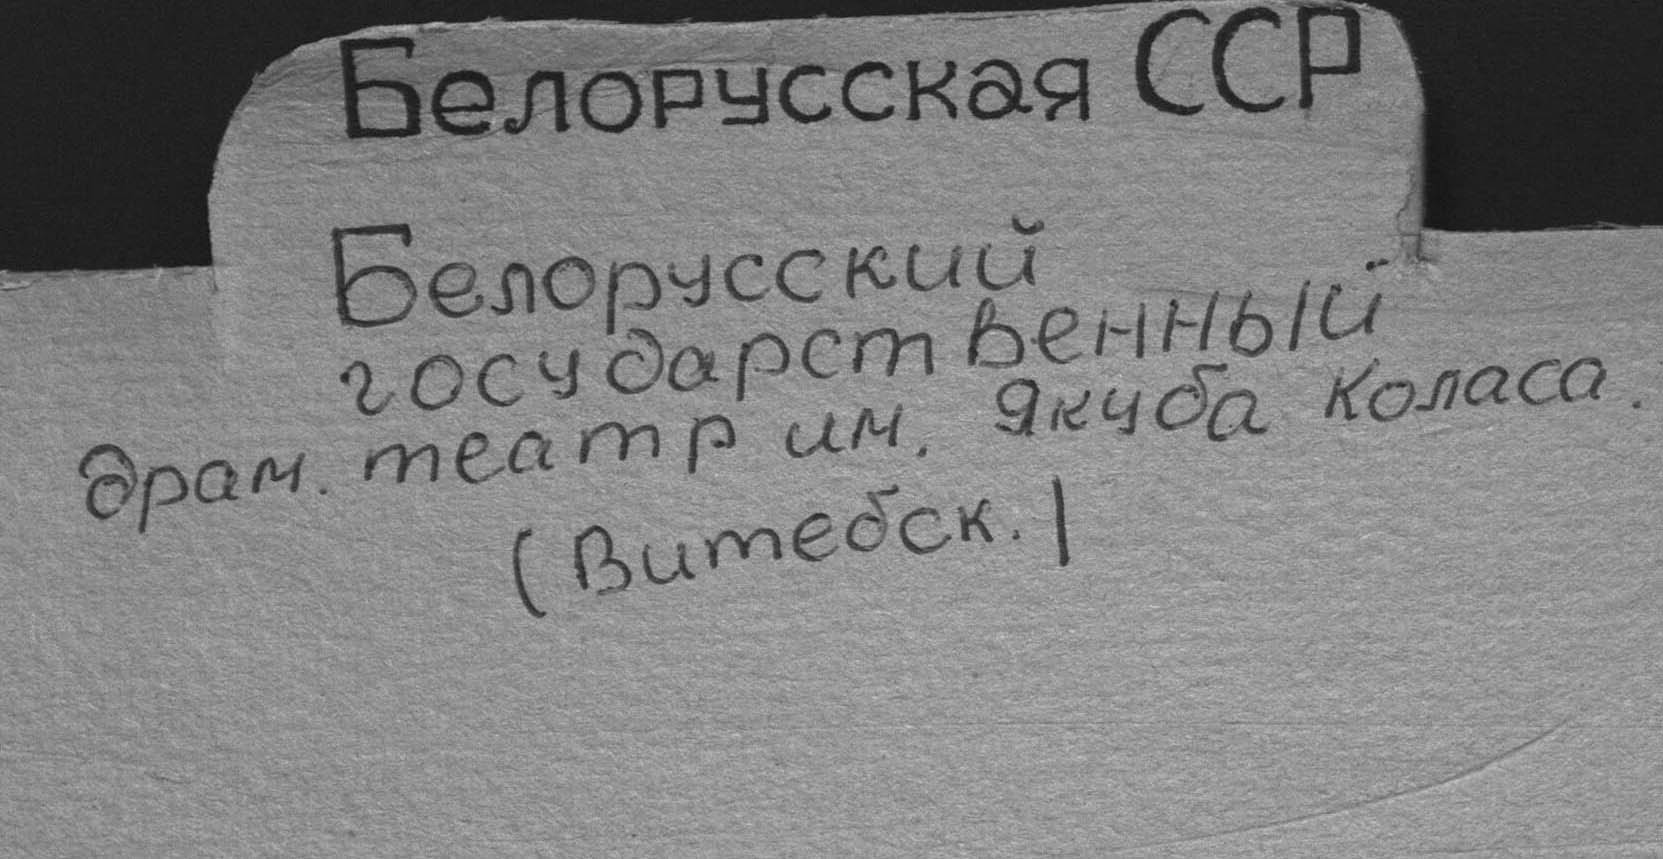 Белорусская ССР
Белорусский
государственный
драм. театр им. Якуба Коласа.
(Витебск.)